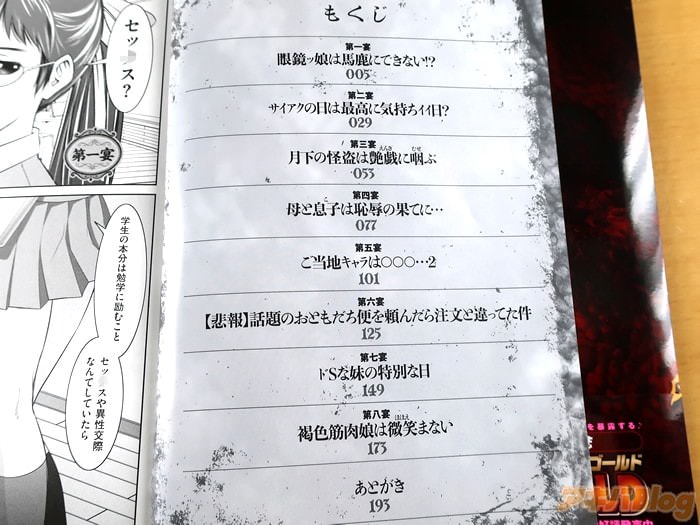 もくじ
第一宴
眼鏡ッ娘は馬鹿にできない!?
005
第二宴
サイアクの日は最高に気持ちイイ日?
029
第三宴
月下の怪盗は艶戯に咽ぶ
えんぎ
むせ
053
第四宴
母と息子は恥辱の果てに…
077
第五宴
ご当地キャラは○○○…2
101
第六宴
【悲報】話題のおともだち便を頼んだら注文と違ってた件
125
第七宴
ドSな妹の特別な日
149
第八宴
褐色筋肉娘は微笑まない
ほほえ
173
あとがき
193
セッ
ス?
第一宴
学生の本分は勉学に励むこと
セッ
スや異性交際
なんてしていたら
を暴露する♪
ゴールド
アキバBlog